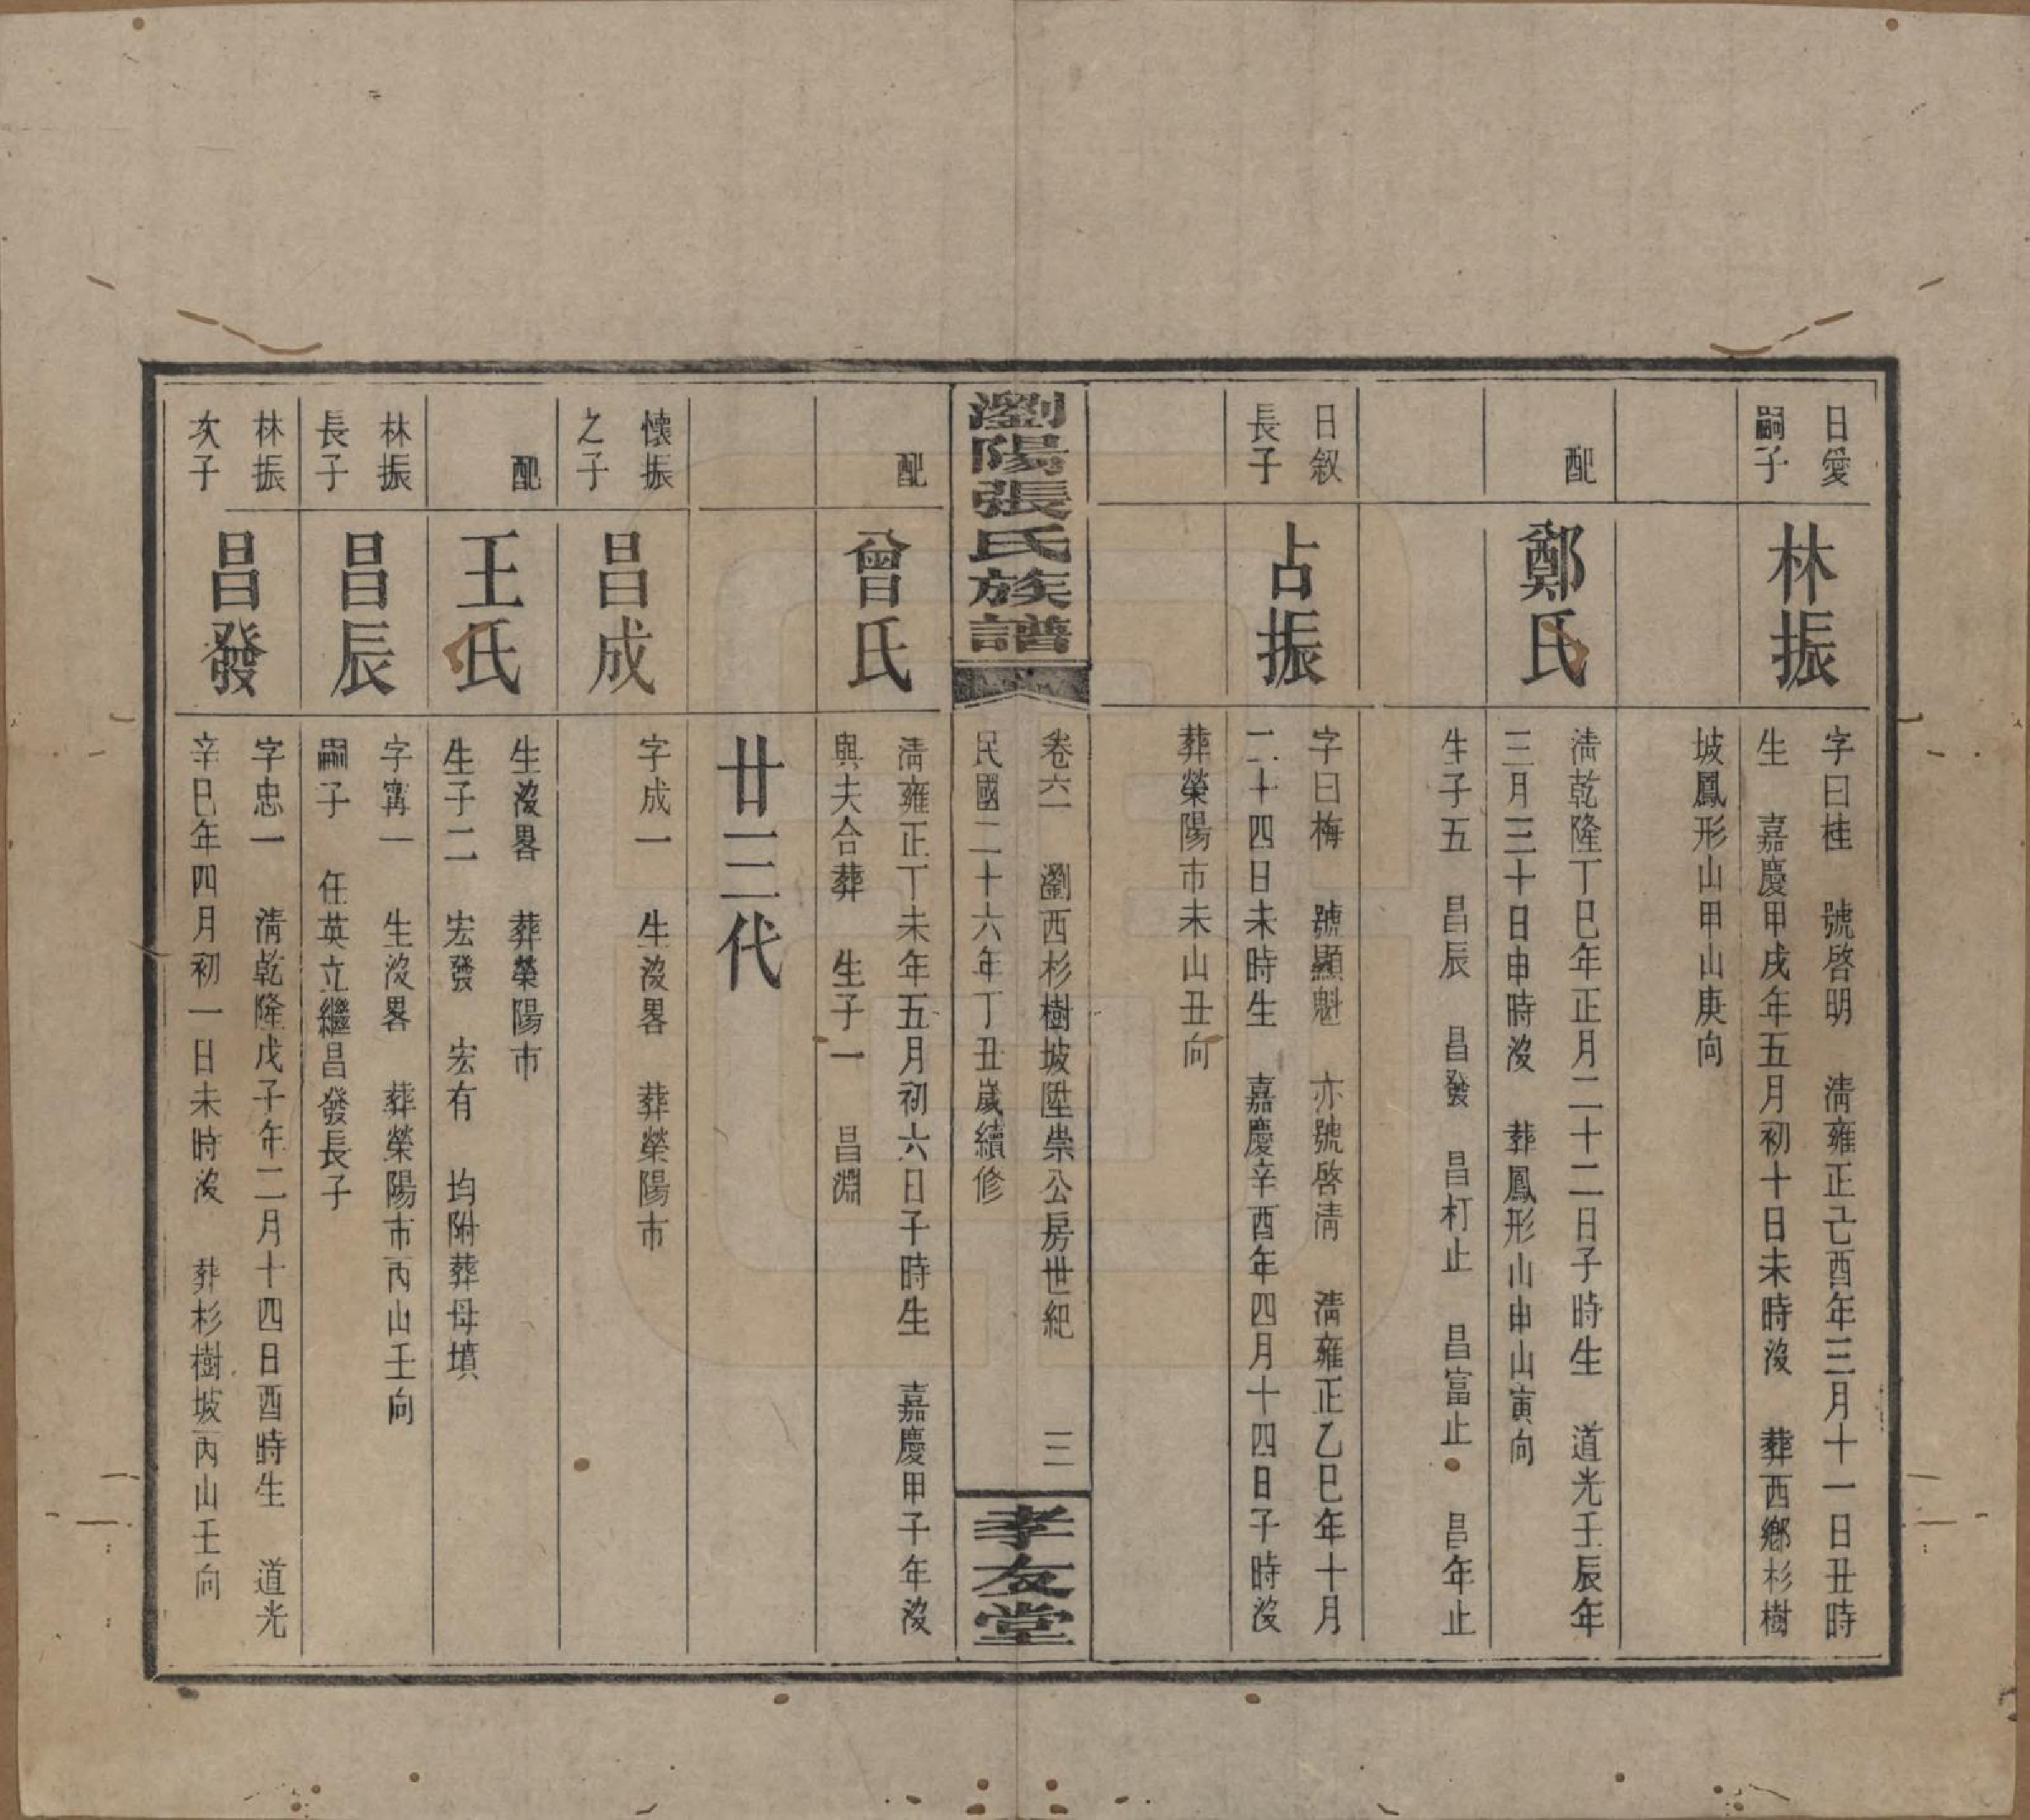 日愛
嗣子
林振
字曰桂 號啓明 淸雍正己酉年三月十一日丑時
生 嘉慶甲戌年五月初十日未時沒 葬西鄕杉樹
坡鳳形山甲山庚向
配
鄭氏
淸乾隆丁巳年正月二十二日子時生 道光壬辰年
三月三十日申時沒 葬鳳形山申山寅向
生子五 昌辰 昌發 昌朾止 昌富止 昌年止
日叙
長子
占振
字曰梅 號顯魁 亦號啓淸 淸雍正乙巳年十月
二十四日未時生 嘉慶辛酉年四月十四日子時沒
葬榮陽市未山丑向
瀏陽張氏族譜
卷六 瀏西杉樹坡陞崇公房世紀 三
民國二十六年丁丑歲續修
孝友堂
配
曾氏
淸雍正丁未年五月初六日子時生 嘉慶甲子年沒
與夫合葬 生子一 昌淵
廿三代
懷振
之子
昌成
字成一 生沒畧 葬榮陽市
配
王氏
生沒畧 葬榮陽市
生子二 宏發 宏有 均附葬母墳
林振
長子
昌辰
字寗一 生沒畧 葬榮陽市丙山壬向
嗣子 任英立繼昌發長子
林振
次子
昌發
字忠一 淸乾隆戊子年二月十四日酉時生 道光
辛巳年四月初一日未時沒 葬杉樹坡丙山壬向